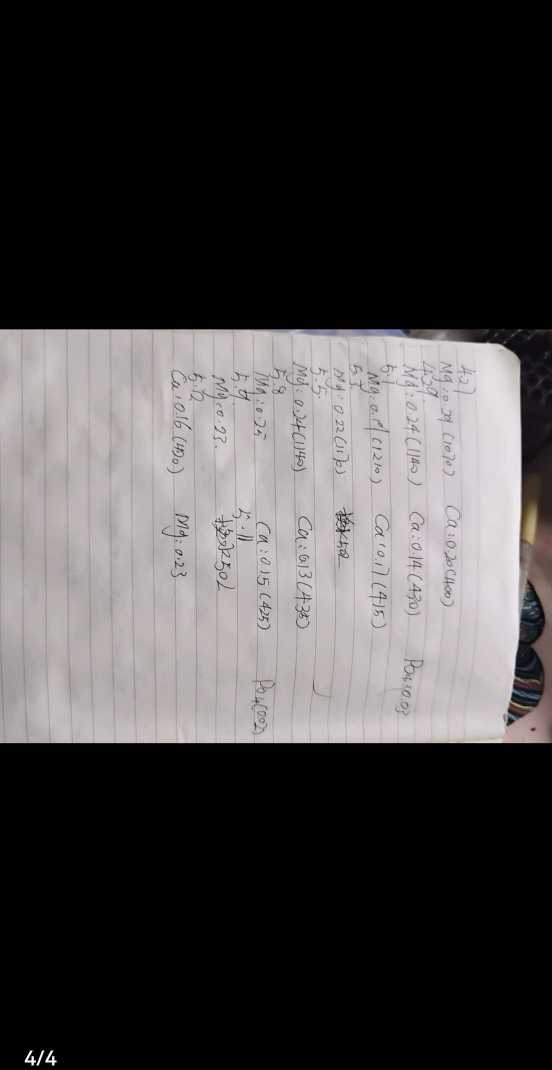 4.27
Mg: 0.29 (1070) Ca: 0.20 (400)
4.29
Mg: 0.24 (1140) Ca: 0.14 (430) PO4: 0.03
5.1
Mg: 0.19 (1210) Ca: 0.17 (415)
5.3
Mg: 0.22 (1170) 换水50L
5.5
Mg: 0.24 (1140) Ca: 0.13 (435)
5.8
Mg: 0.25 Ca: 0.15 (425) PO4 (0.02)
5.9 5.11
Mg: 0.23. 换水50L
5.12
Ca: 0.16 (420) Mg: 0.23
4/4